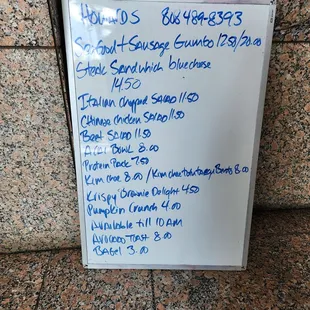 HOWARDS 808 489-8393
Seafood + Sausage Gumbo 12.50/20.00
Steak Sandwich blue cheese
14.50
Italian chopped SALAD 11.50
Chinese chicken SALAD 11.50
Beet SALAD 11.50
Acai Bowl 8.00
Protein Pack 7.50
Kim chee 8.00 / Kim chee tofu
Krispy Brownie Delight 4.50
Pumpkin Crunch 4.00
Available till 10 AM
Avocado Toast 8.00
BAGEL 3.00